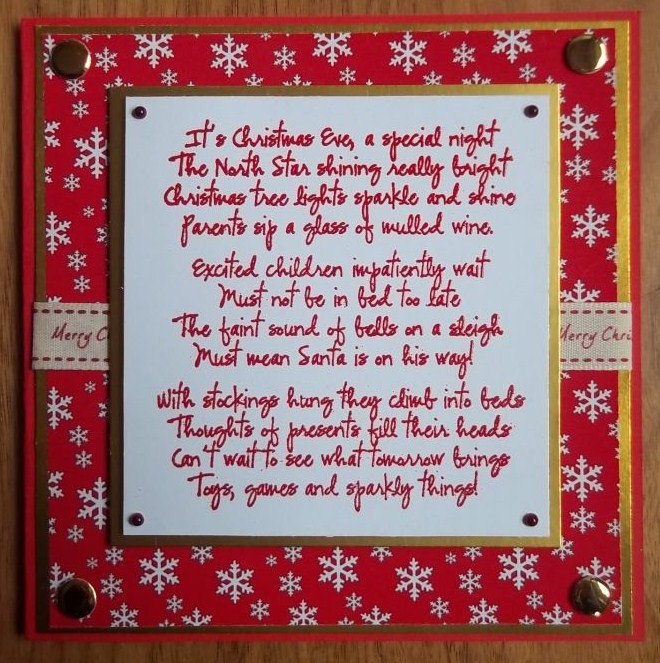 It's Christmas Eve, a special night
The North Star shining really bright
Christmas tree lights sparkle and shine
Parents sip a glass of mulled wine.
Excited children impatiently wait
Must not be in bed too late
The faint sound of bells on a sleigh
Must mean Santa is on his way!
Merry C
Merry Chri
With stockings hung they climb into beds
Thoughts of presents fill their heads
Can't wait to see what tomorrow brings
Toys, games and sparkly things!